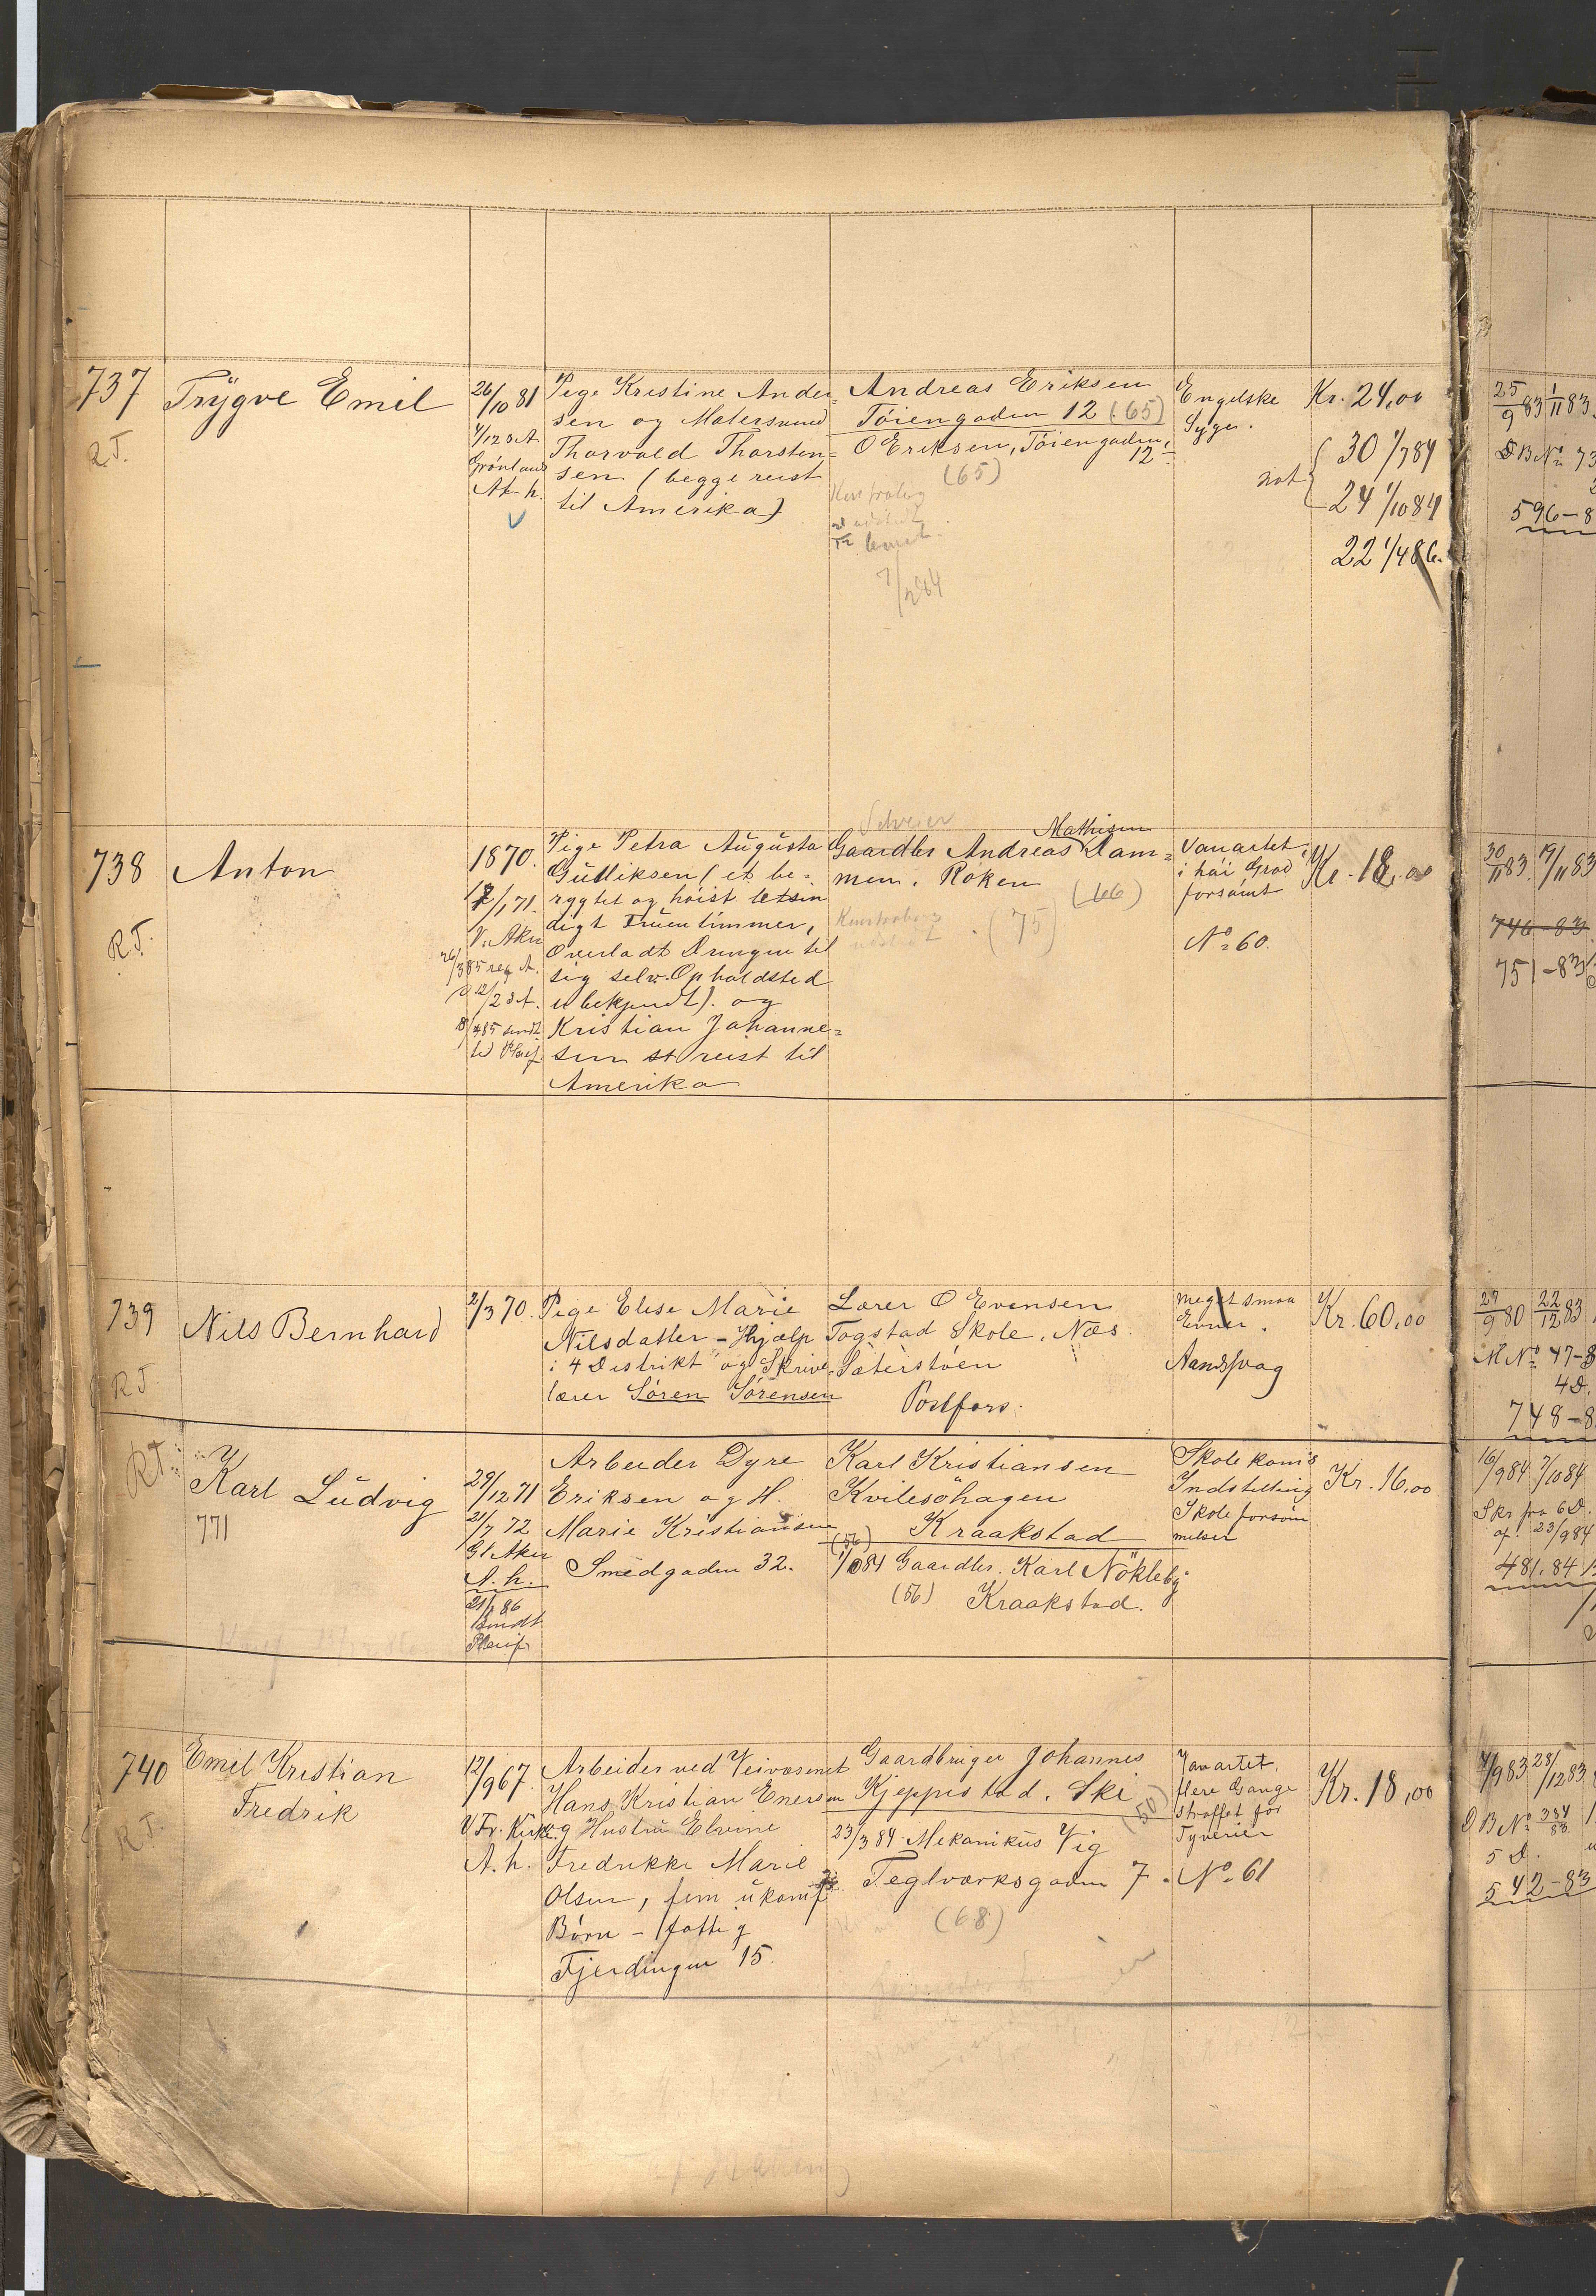 737
R.T.
Trygve Emil
26/10 81
Grønland
A. h.
Pige Kristine Ander-
sen og Malersvend
Thorvald Thorsten=
sen (begge reist
til Amerika)
Andreas Eriksen
Tøiengaden 12 (65)
O Eriksen, Tøiengaden,
12
(65)
Engelske
Syge.
Kr. 24,00
30 1/7 84
24 1/10 84
22 1/4 86.
25/9 83 1/11 83
DB No 73
596-8
738
R.T.
Anton
1870.
V. Aker
Pige Petra Augusta
Gulliksen (et be=
rygtet og høist letsin
digt Fruentimmer,
Overladt Drengen til
sig selv. Opholdsted
ubekjendt). og
Kristian Johanne=
sen reist til
Amerika
Selveier
Mathisen
Gaardbr Andreas Dam=
men. Røken
(66)
(75)
Vanartet,
i høi Grad
forsømt
No 60.
Kr. 18,00
30/11 83. 19/11 83
746-83
751-83
739
RT
Nils Bernhard
2/3 70.
Pige Elise Marie
Nilsdatter - Hjælp
i 4 Distrikt og Skrive
lærer Søren Sørensen
Lærer O Evensen
Togstad Skole. Næs
Sæterstøen
Postfors.
meget smaa
Evner.
Aandssvag
Kr. 60,00
27/9 80 22/12 83
M No 47-8
4 D.
748-8
R.T.
Karl Ludvig
771
29/12 71
21/7 72
Gl. Aker
A. h.
sendt
Arbeider Dyre
Eriksen og H.
Marie Kristiansen
Smedgaden 32.
Karl Kristiansen
Kvilesøhagen
(56) Kraakstad
1/10 84 Gaardbr. Karl Nökleby
(56) Kraakstad.
Skolekom's
Indstilling
Skoleforsøm
melser
Kr. 16,00
16/9 84 7/10 84
Skr fra 6 D.
af 23/9 84
481.84
740
R.T.
Emil Kristian
Fredrik
12/9 67.
V Fr. Kirke.
A. h.
Arbeider ved Veivæsenet
Hans Kristian Enersen
og Hustru Elvine
Fredrikke Marie
Olsen, fem ukonf
Børn - fattig
Fjerdingen 15.
Gaardbruger Johannes
Kjeppestad. Ski
(50)
23/3 84 Mekanikus Vig
Teglværksgaden 7.
(68)
Vanartet,
flere Gange
straffet for
Tyverier
No 61
Kr. 18,00
DB No 384/83
5 D.
542-83